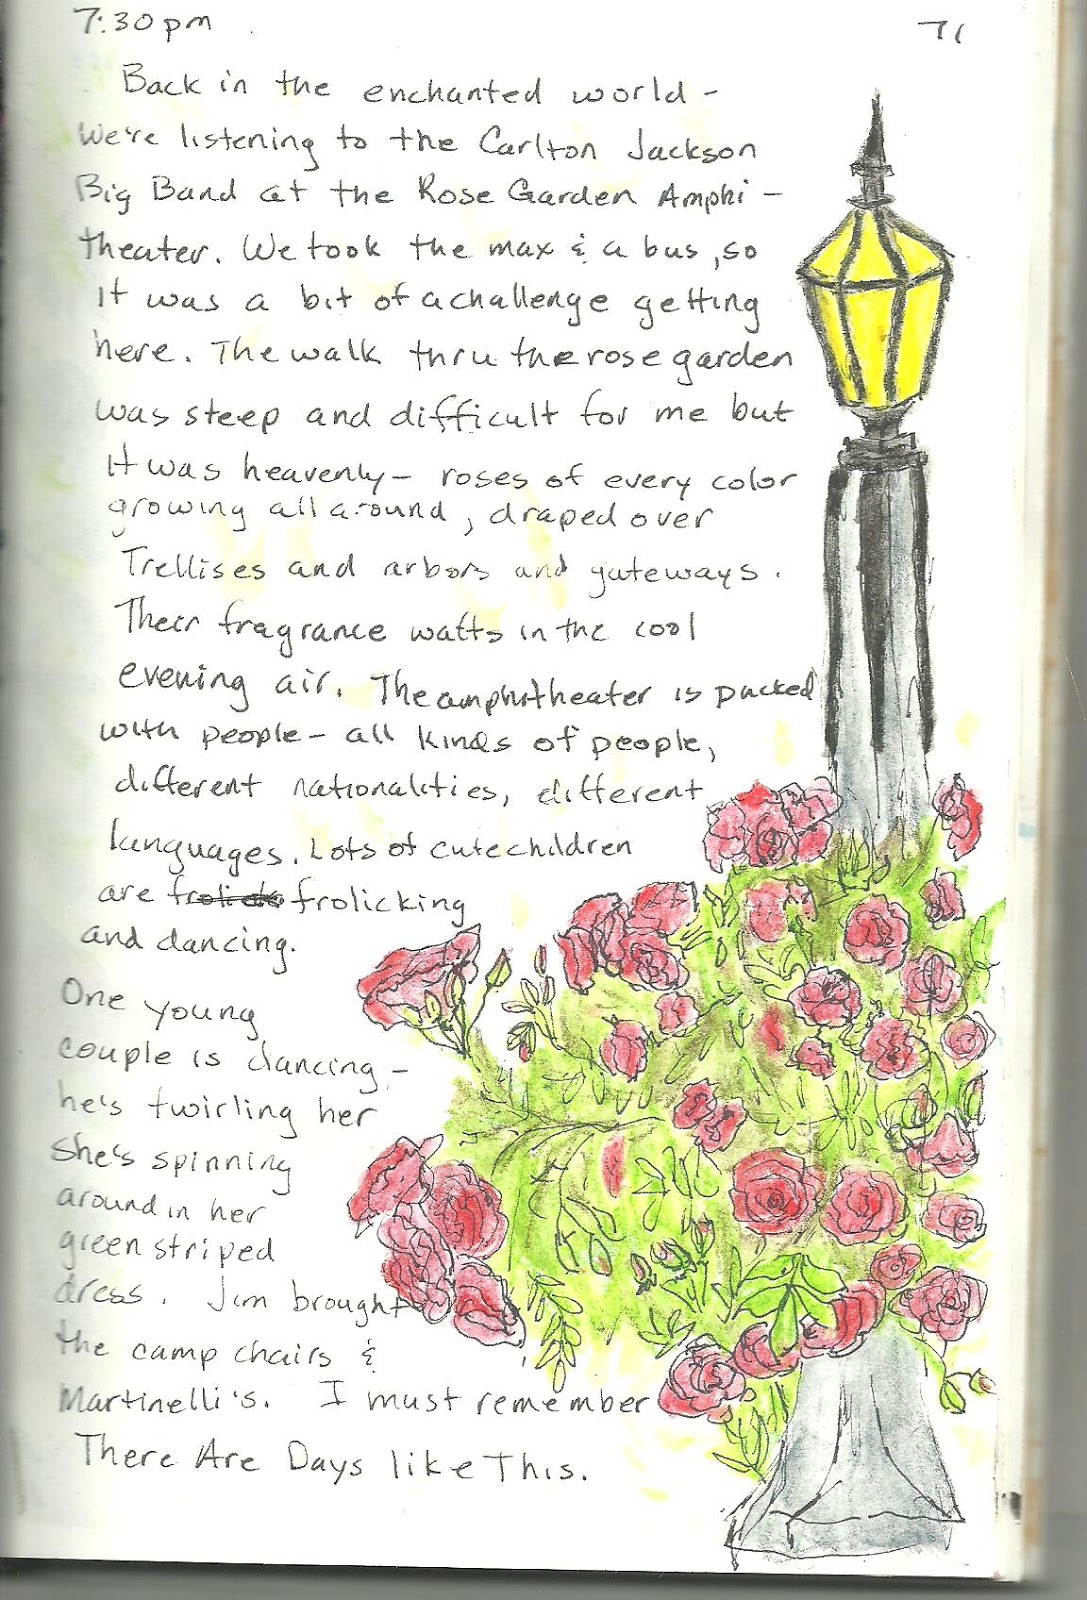 7:30pm
71
Back in the enchanted world -
We're listening to the Carlton Jackson
Big Band at the Rose Garden Amphi -
theater. We took the max & a bus, so
It was a bit of a challenge getting
here. The walk thru the rose garden
was steep and difficult for me but
It was heavenly - roses of every color
growing all around, draped over
Trellises and arbors and gateways.
Their fragrance wafts in the cool
evening air. The amphitheater is packed
with people - all kinds of people,
different nationalities, different
languages. Lots of cute children
are frolicking
and dancing.
One young
couple is dancing -
he's twirling her
She's spinning
around in her
green striped
dress. Jim brought
the camp chairs &
Martinelli's. I must remember
There Are Days like This.